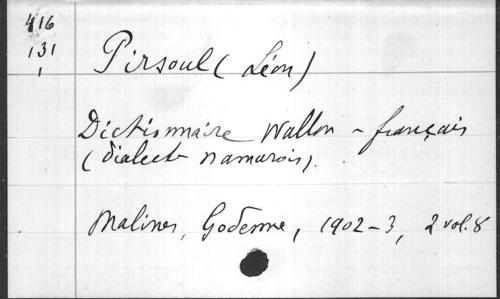 416
131
1
Pirsoul (Léon)
Dictionnaire Wallon - français
(dialect namurois).
Malines, Godenne, 1902-3, 2 vol. 8